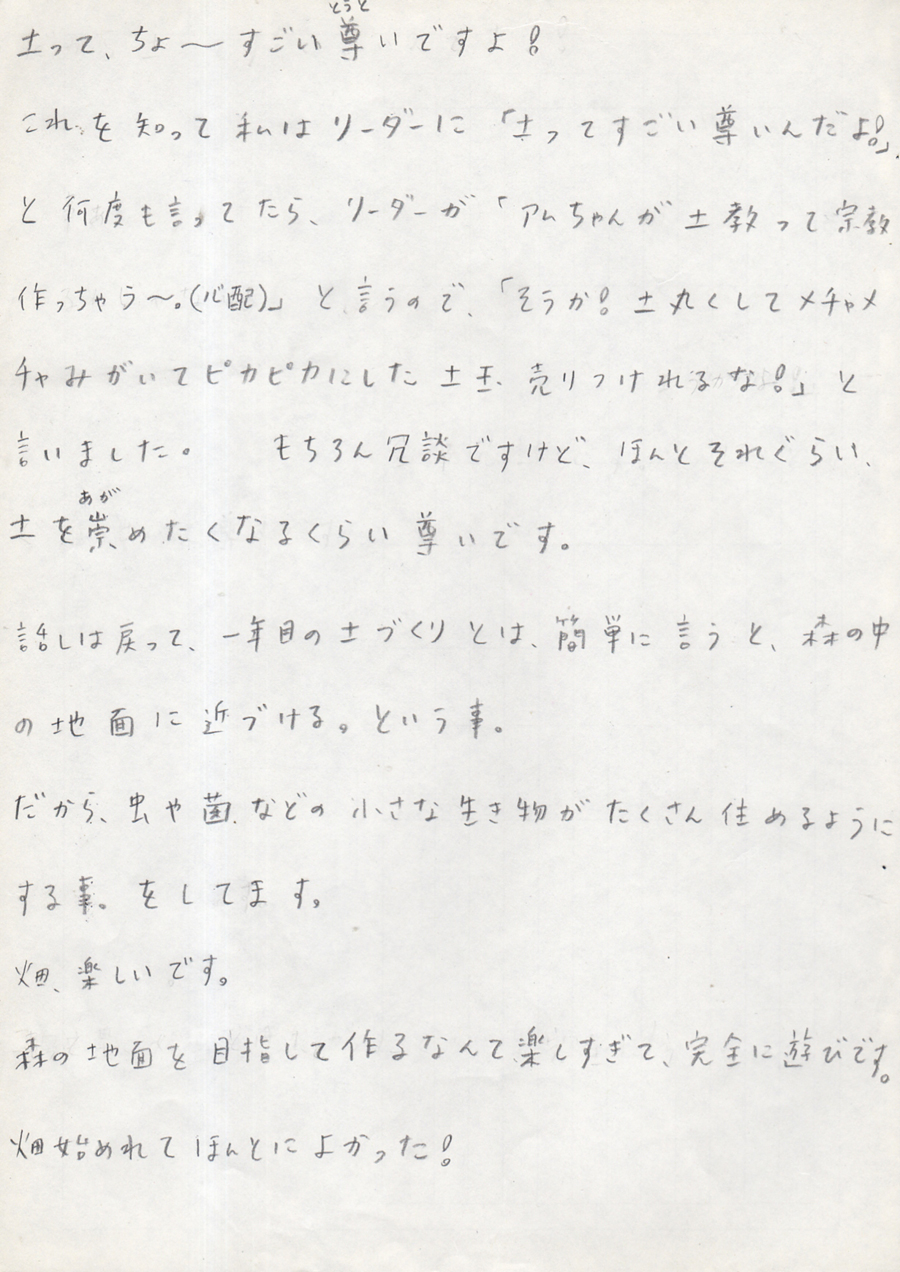 とうと
土って、ちょ〜すごい尊いですよ!
これを知って私はリーダーに「土ってすごい尊いんだよ!」
と何度も言ってたら、リーダーが「アムちゃんが土教って宗教
作っちゃう〜。(心配)」と言うので、「そうか!土丸くしてメチャメ
チャみがいてピカピカにした土玉売りつけれるな!」と
言いました。 もちろん冗談ですけど、ほんとそれぐらい、
あが
土を崇めたくなるくらい尊いです。
話しは戻って、一年目の土づくりとは、簡単に言うと、森の中
の地面に近づける。という事。
だから、虫や菌などの小さな生き物がたくさん住めるように
する事。をしてます。
畑、楽しいです。
森の地面を目指して作るなんて楽しすぎて、完全に遊びです。
畑始めれてほんとによかった!